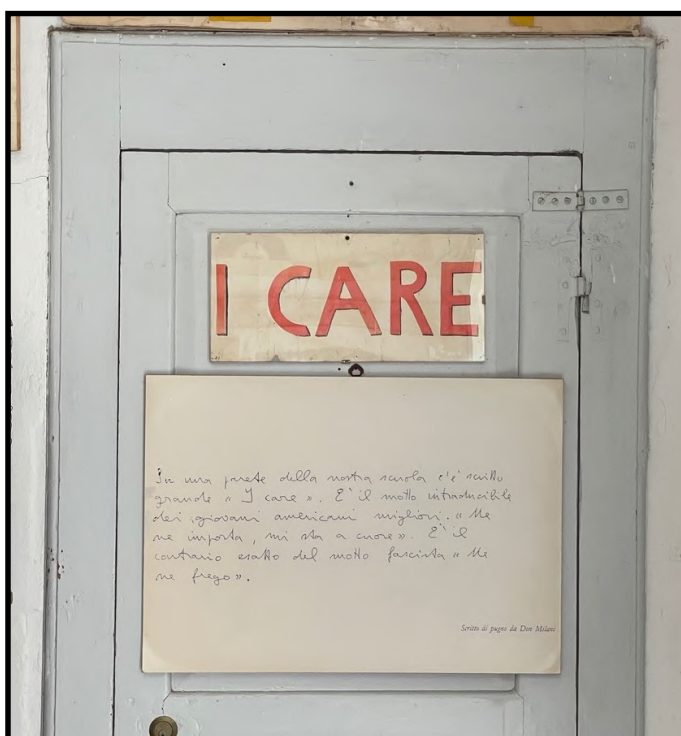 I CARE
In una parete della nostra scuola c'è scritto
grande « I care ». E' il motto intraducibile
dei giovani americani migliori. « Me
ne importa, mi sta a cuore ». E' il
contrario esatto del motto fascista « Me
ne frego ».
Scritto di pugno da Don Milani